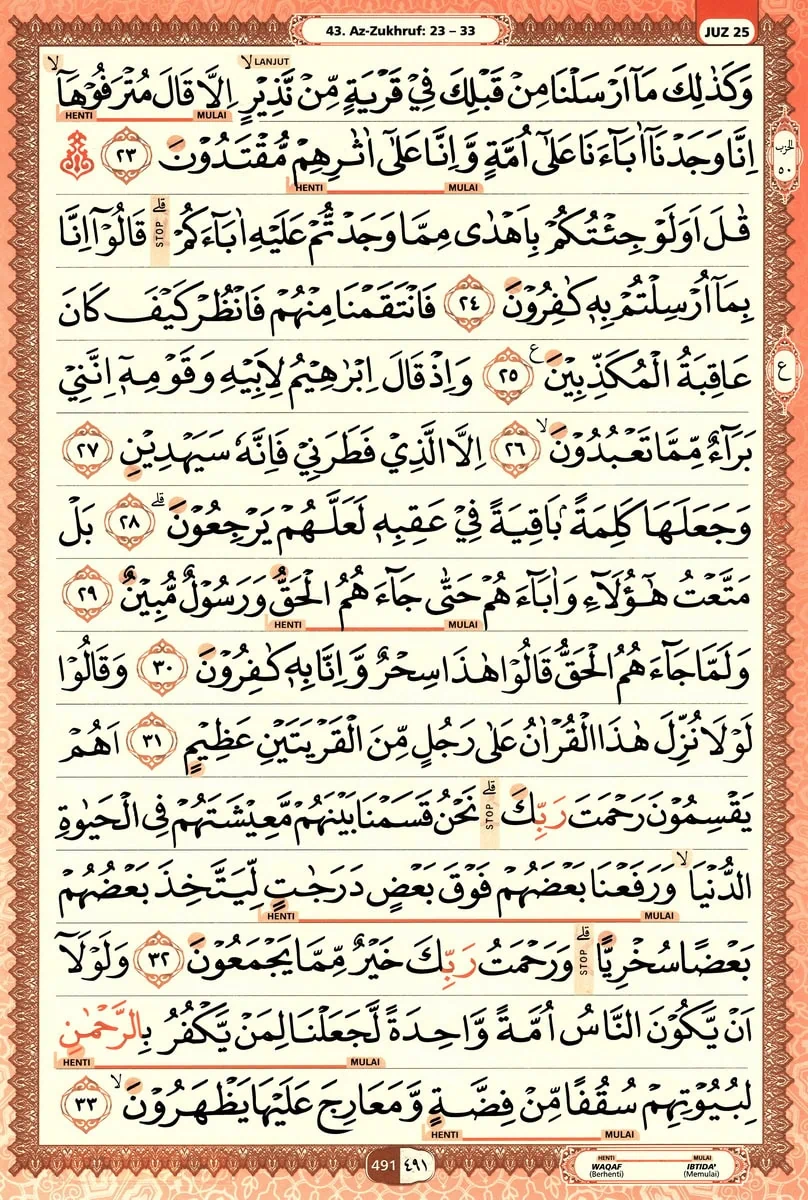 43. Az-Zukhruf: 23 – 33
JUZ 25
LANJUT
وَكَذٰلِكَ مَآ اَرْسَلْنَا مِنْ قَبْلِكَ فِيْ قَرْيَةٍ مِّنْ نَّذِيْرٍۙ اِلَّا قَالَ مُتْرَفُوْهَآۙ
MULAI HENTI
اِنَّا وَجَدْنَآ اٰبَاۤءَنَا عَلٰٓى اُمَّةٍ وَّاِنَّا عَلٰٓى اٰثٰرِهِمْ مُّقْتَدُوْنَ ٢٣
الحزب ٥٠
MULAI HENTI
قٰلَ اَوَلَوْ جِئْتُكُمْ بِاَهْدٰى مِمَّا وَجَدْتُّمْ عَلَيْهِ اٰبَاۤءَكُمْۗ STOP قَالُوْٓا اِنَّا
بِمَآ اُرْسِلْتُمْ بِهٖ كٰفِرُوْنَ ٢٤ فَانْتَقَمْنَا مِنْهُمْ فَانْظُرْ كَيْفَ كَانَ
عَاقِبَةُ الْمُكَذِّبِيْنَ ࣖ ٢٥ وَاِذْ قَالَ اِبْرٰهِيْمُ لِاَبِيْهِ وَقَوْمِهٖٓ اِنَّنِيْ
ع
بَرَاۤءٌ مِّمَّا تَعْبُدُوْنَۙ ٢٦ اِلَّا الَّذِيْ فَطَرَنِيْ فَاِنَّهٗ سَيَهْدِيْنِ ٢٧
وَجَعَلَهَا كَلِمَةً ۢ بَاقِيَةً فِيْ عَقِبِهٖ لَعَلَّهُمْ يَرْجِعُوْنَۗ ٢٨ بَلْ
مَتَّعْتُ هٰٓؤُلَاۤءِ وَاٰبَاۤءَهُمْ حَتّٰى جَاۤءَهُمُ الْحَقُّ وَرَسُوْلٌ مُّبِيْنٌ ٢٩
MULAI HENTI
وَلَمَّا جَاۤءَهُمُ الْحَقُّ قَالُوْا هٰذَا سِحْرٌ وَّاِنَّا بِهٖ كٰفِرُوْنَ ٣٠ وَقَالُوْا
لَوْلَا نُزِّلَ هٰذَا الْقُرْاٰنُ عَلٰى رَجُلٍ مِّنَ الْقَرْيَتَيْنِ عَظِيْمٍ ٣١ اَهُمْ
يَقْسِمُوْنَ رَحْمَتَ رَبِّكَۗ STOP نَحْنُ قَسَمْنَا بَيْنَهُمْ مَّعِيْشَتَهُمْ فِى الْحَيٰوةِ
الدُّنْيَاۙ وَرَفَعْنَا بَعْضَهُمْ فَوْقَ بَعْضٍ دَرَجٰتٍ لِّيَتَّخِذَ بَعْضُهُمْ
MULAI HENTI
بَعْضًا سُخْرِيًّاۗ STOP وَرَحْمَتُ رَبِّكَ خَيْرٌ مِّمَّا يَجْمَعُوْنَ ٣٢ وَلَوْلَآ
اَنْ يَّكُوْنَ النَّاسُ اُمَّةً وَّاحِدَةً لَّجَعَلْنَا لِمَنْ يَّكْفُرُ بِالرَّحْمٰنِ
MULAI HENTI
لِبُيُوْتِهِمْ سُقُفًا مِّنْ فِضَّةٍ وَّمَعَارِجَ عَلَيْهَا يَظْهَرُوْنَۙ ٣٣
MULAI HENTI
491 ٤٩١
HENTI MULAI
WAQAF IBTIDA'
(Berhenti) (Memulai)